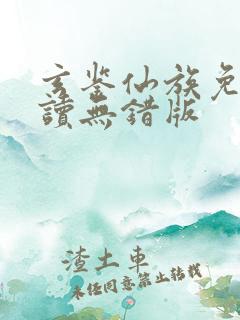 玄鉴仙族免
讀無錯版
渣土車
未经同意禁止转载